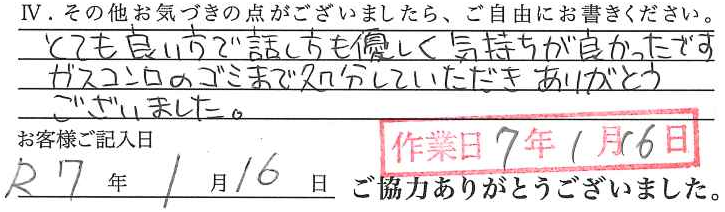 Ⅳ．その他お気づきの点がございましたら、ご自由にお書きください。
とても良い方で話し方も優しく気持ちが良かったです
ガスコンロのゴミまで処分していただきありがとう
ございました。
お客様ご記入日
作業日 7年1月16日
R7年1月16日 ご協力ありがとうございました。